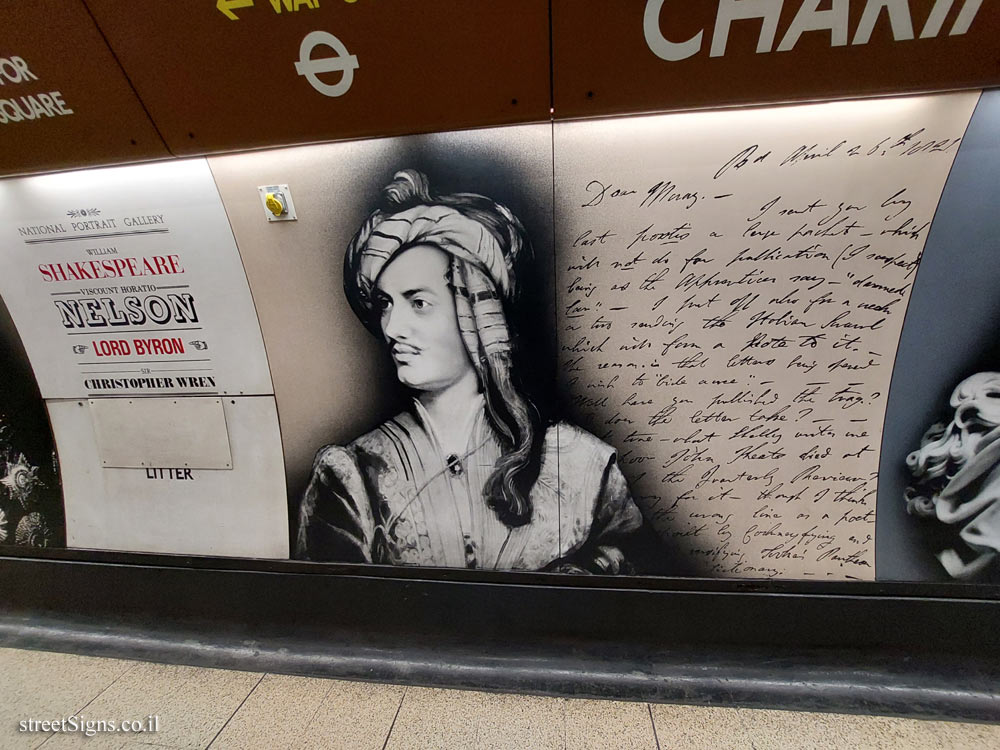 WAY
CHARI
OR
SQUARE
NATIONAL PORTRAIT GALLERY
WILLIAM
SHAKESPEARE
VISCOUNT HORATIO
NELSON
LORD BYRON
SIR
CHRISTOPHER WREN
LITTER
April 26th 1821
Dear Moray. — I sent you by
last postis a large packet — which
will not do for publication (I suspect)
being as the Apprentices say — "damned
low". — I put off also for a week
or two sending the Italian Scrawl
which will form a Note to it. —
The reason is that letters being opened
I wish to "bide a wee". —
Well have you published the trag?
does the letter take? —
true — what Shelley writes me
poor John Keats died at
the Quarterly Review?
for it — though I think
the wrong line as a poet —
by Cockneyfying and
Pantheon
ictionary. — — —
streetSigns.co.il